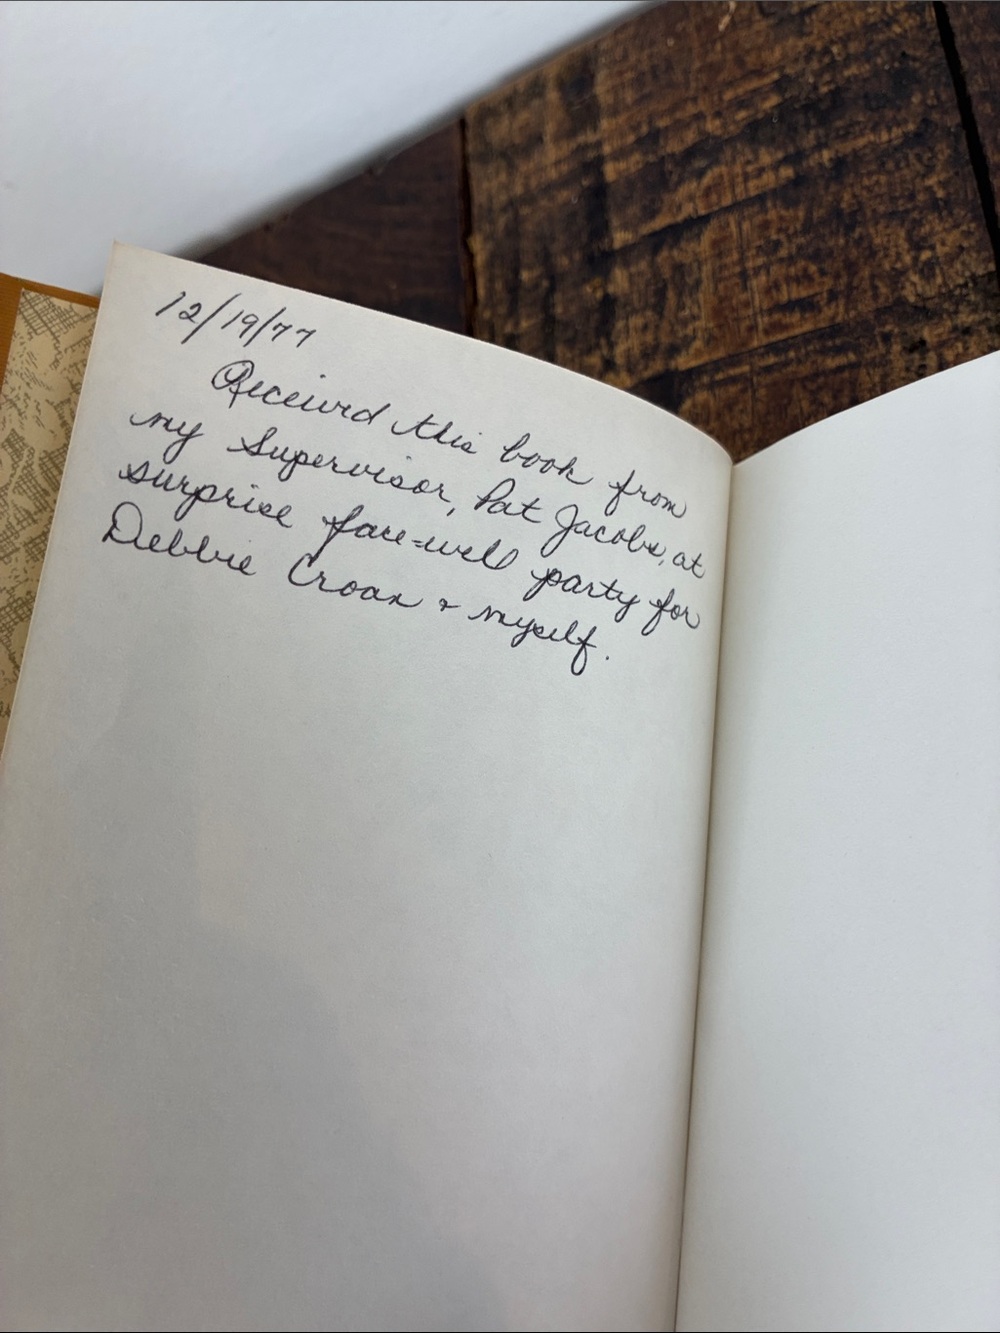 12/19/77
Received this book from
my Supervisor, Pat Jacobs, at
surprise fare-well party for
Debbie Croan & myself.